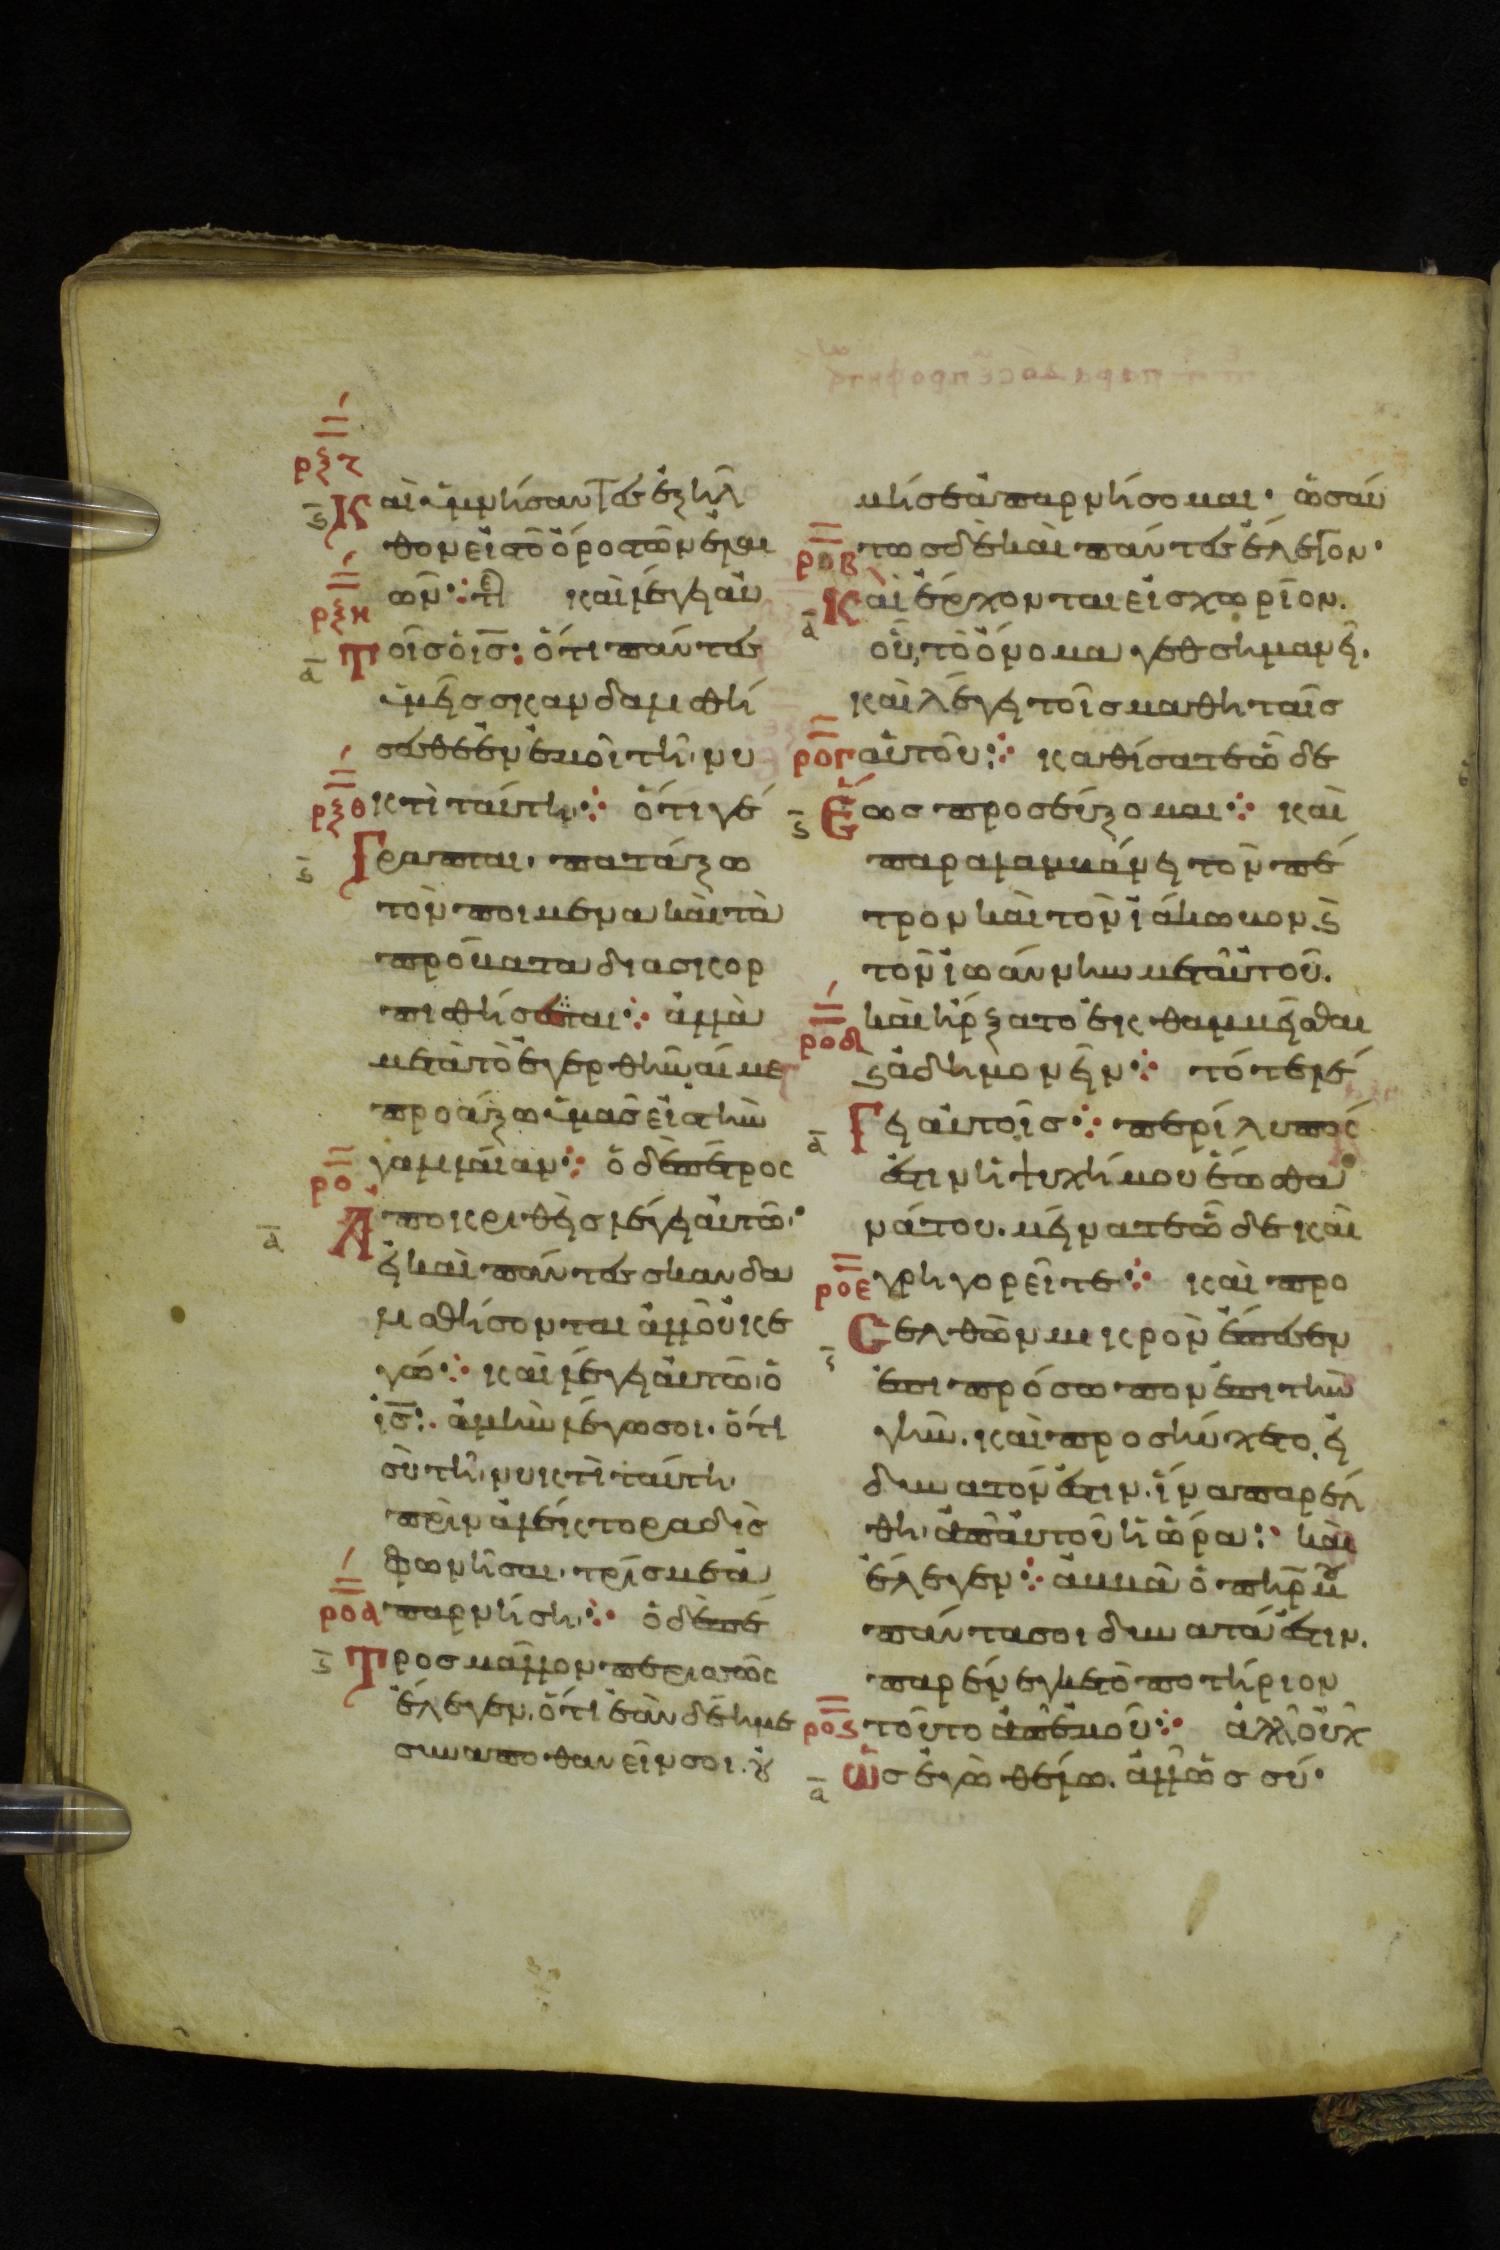 ρξζ
ς Καὶ ὑμνήσαντες ἐξῆλ
θον εἰς τὸ ὄρος τῶν ἐλαι
ῶν ⁘ τε καὶ λέγει αὐ
ρξη
α Τοῖς ὁ ις̅ : ὅτι πάντες
ὑμεῖς σκανδαλισθή
σεσθε ἐν ἐμοὶ τῆ νυ
ρξθ
κτὶ ταύτη ⁘ ὅτι γέ
ς Γραπται · πατάξω
τὸν ποιμένα καὶ τὰ
πρόβατα διασκορ
πισθήσεται ⁘ ἀλλὰ
μετὰ τὸ ἐγερθῆναί με
προάξω ὑμᾶς εἰς τὴν
γαλιλαίαν ⁘ ὁ δὲ πέτρος
ρο
α Ἀποκριθεὶς λέγει αὐτῶ ·
εἰ καὶ πάντες σκανδα
λισθήσονται ἀλλ' οὐκ ἐ
γώ ⁘ καὶ λέγει αὐτῶ ὁ
ις̅ : ἀμὴν λέγω σοι · ὅτι
σὺ τῆ νυκτὶ ταύτη
πρὶν ἀλέκτορα δὶς
φωνῆσαι · τρίς με ἀ
παρνήση ⁘ ὁ δὲ πέ
ροα
ς Τρος μᾶλλον περισσῶς
ἔλεγεν · ὅτι ἐὰν δέη με
συναποθανεῖν σοι · οὐ
μή σε ἀπαρνήσομαι · ὡσαύ
τως δὲ καὶ πάντες ἔλεγον ·
ροβ
α Καὶ ἔρχονται εἰς χωρίον .
οὗ τὸ ὄνομα γεθσημανεῖ .
καὶ λέγει τοῖς μαθηταῖς
αὐτοῦ ⁘ καθίσατε ὧδε
ρογ
ς Ἕως προσεύξομαι ⁘ καὶ
παραλαμβάνει τὸν πέ
τρον καὶ τὸν ἰάκωβον ϛ
τὸν ἰωάννην μετ' αὐτοῦ .
καὶ ἤρξατο ἐκθαμβεῖσθαι
ϛ ἀδημονεῖν ⁘ τότε λέ
ροδ
α Γει αὐτοῖς ⁘ περίλυπός
ἐστιν ἡ ψυχή μου ἕως θα
νάτου . μείνατε ὧδε καὶ
γρηγορεῖτε ⁘ καὶ προ
ροε
ς Σελθὼν μικρὸν ἔπεσεν
ἐπι πρόσωπον ἐπι τὴν
γῆν . καὶ προσηύχετο εἰ
δυνατόν ἐστιν . ἵνα παρέλ
θη ἀπ' αὐτοῦ ἡ ὥρα : καὶ
ἔλεγεν ⁘ ἀββᾶ ὁ πηρ̅ μου
πάντα σοι δυνατά ἐστιν .
παρένεγκε τὸ ποτήριον
τοῦτο ἀπ' ἐμοῦ ⁘ ἀλλ' οὐχ
ρος
α Ὡς ἐγὼ θέλω . ἀλλ' ὡς σύ ·